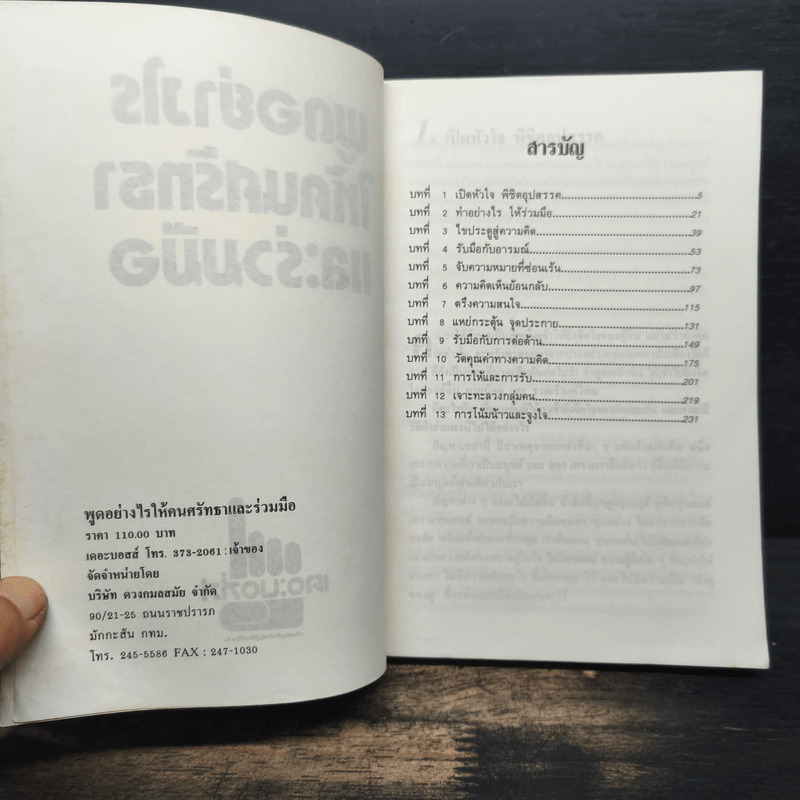 พูดอย่างไรให้คนศรัทธาและร่วมมือ
ราคา 110.00 บาท
เดอะบอสส์ โทร. 373-2061 : เจ้าของ
จัดจำหน่ายโดย
บริษัท ดวงกมลสมัย จำกัด
90/21-25 ถนนราชปรารภ
มักกะสัน กทม.
โทร. 245-5586 FAX : 247-1030
สารบัญ
บทที่ 1 เปิดหัวใจ พิชิตอุปสรรค........5
บทที่ 2 ทำอย่างไร ให้ร่วมมือ........21
บทที่ 3 ไขประตูสู่ความคิด........39
บทที่ 4 รับมือกับอารมณ์........53
บทที่ 5 จับความหมายที่ซ่อนเร้น........73
บทที่ 6 ความคิดเห็นย้อนกลับ........97
บทที่ 7 ตรึงความสนใจ........115
บทที่ 8 แหย่กระตุ้น จุดประกาย........131
บทที่ 9 รับมือกับการต่อต้าน........149
บทที่ 10 วัดคุณค่าทางความคิด........175
บทที่ 11 การให้และการรับ........201
บทที่ 12 เจาะทะลวงกลุ่มคน........219
บทที่ 13 การโน้มน้าวและจูงใจ........231